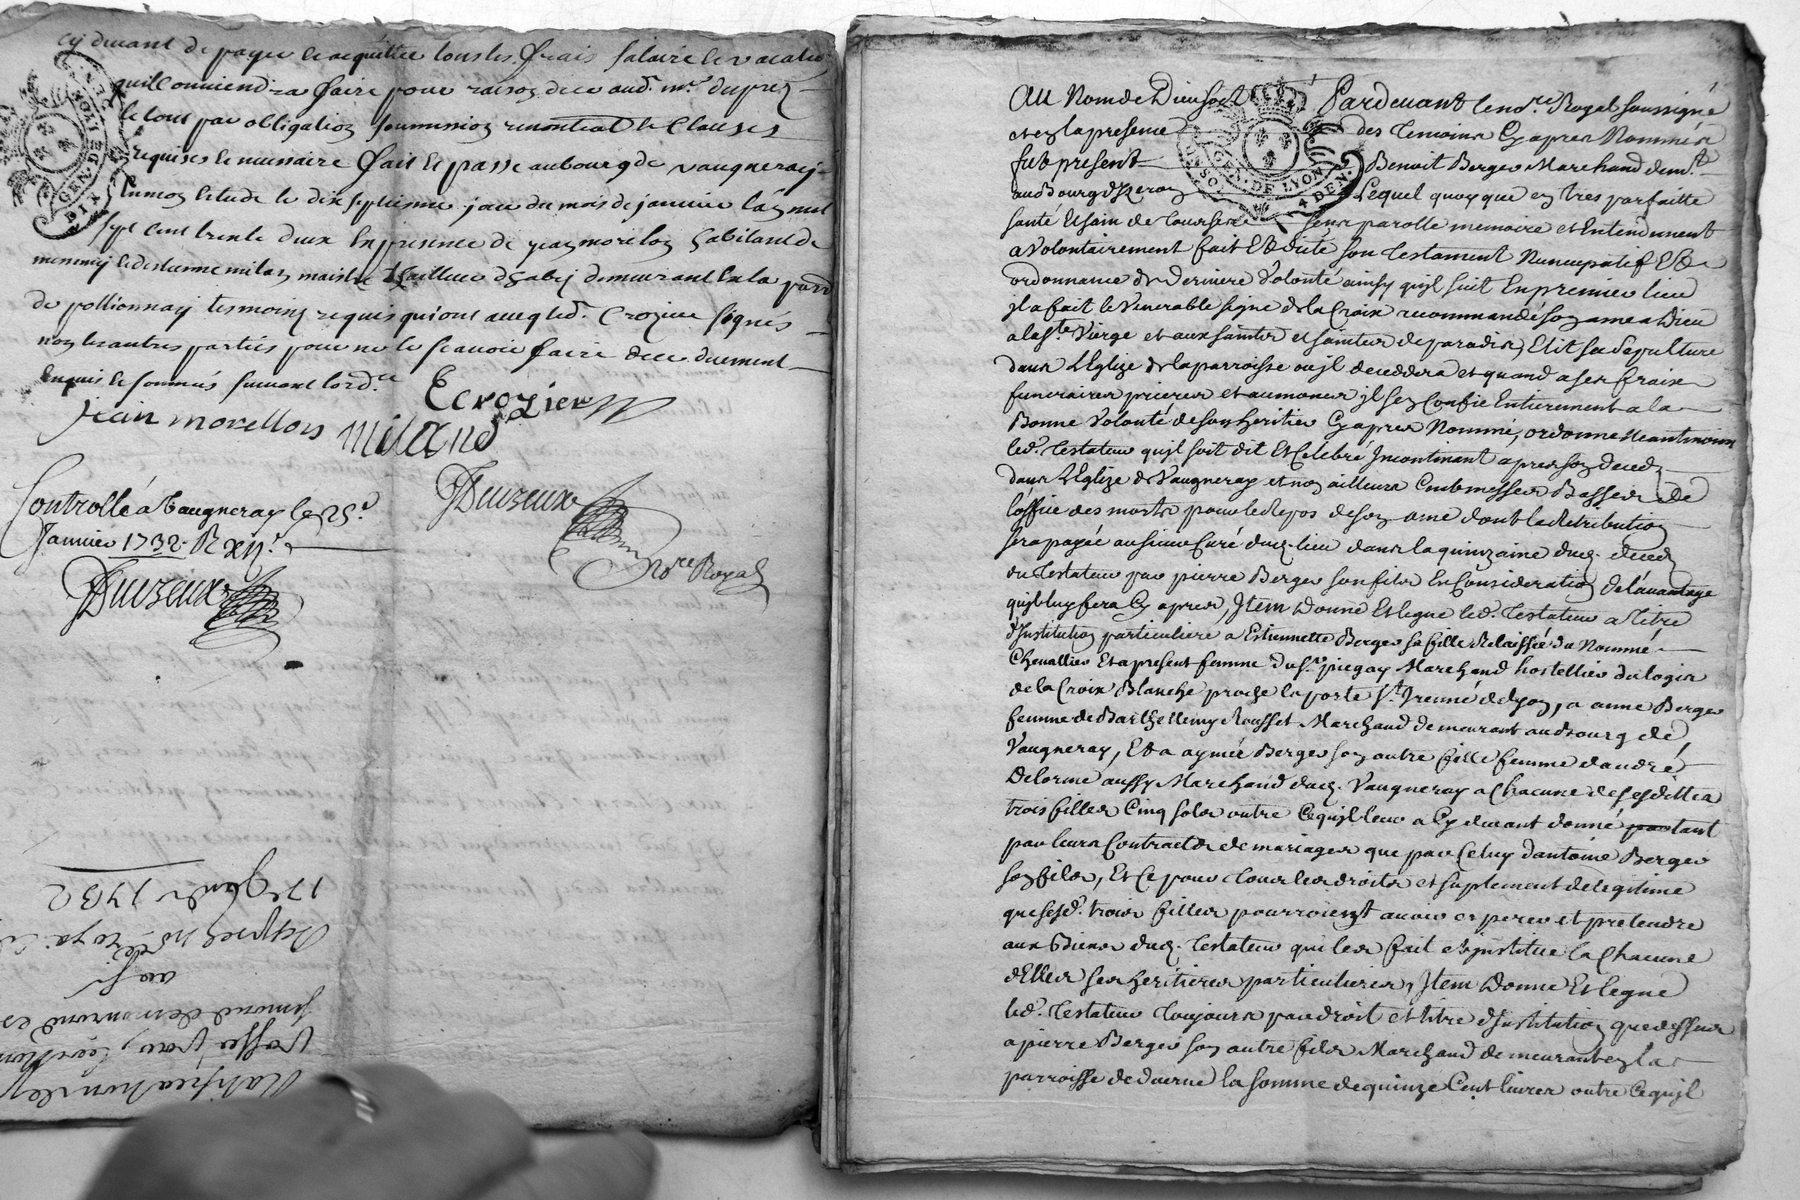 cy devant de payer et acquitter tous les frais salaire et vacation
quil conviendra faire pour raison de ce aud. mr. duprez
le tout par obligation soumission renontiat et Clauses
requises et necessaire fait et passé au bourg de vaugneray
en mon etude le dix septieme jour du mois de janvier lan mil
sept cent trente deux en presence de jean morellon habitant de
messimy et destienne milan maistre tailleur dhabij demeurant en la parr
de pollionnay tesmoins requis qui ont avec led. Crozier signés
non les autres parties pour ne le scavoir faire de ce duement
enquis et sommés suivant lord.ce
ECrozier
jean morellon miland
Deuzeux
No.re Royal
Controllé à Vaugneray le 25.e
Janvier 1732. R xij s.
Deuzeux
17e Janv. 1732
Au Nom de Dieu soit Pardevant le no.re Royal soussigné
et en la presence des temoins Cy apres Nommés
fut present Benoit Berger Marchand dem.t
au Bourg Lequel quoy que en tres parfaitte
santé et sain de tous ses sens parolle memoire et Entendement
a Volontairement fait Et dicté son testament Nuncupatif Et de
ordonnance de Derniere Volonté ainsy qu'jl suit En premier lieu
jl a fait le Venerable signe de la Croix recommandé son ame a Dieu
a la s.te Vierge et aux saints et saintes de paradis, Elit sa sepulture
dans L'Eglize de la parroisse ou jl deceddera et quand a ses fraix
funeraires prieres et aumones jl s'en Confie Entierement a la
Bonne Volonté de son heritier Cy apres Nommé, ordonne Neantmoins
led. testateur qu'jl soit dit Et Celebré Jncontinant apres son deceds
dans L'Eglize de Vaugneray et non ailleurs Cent messes Basses de
l'office des morts pour le Repos de son ame dont la Retribution
sera payée au sieur Curé dud. lieu dans la quinzaine dud. deceds
du testateur par pierre Berger son fils En Consideration de l'avantage
qu'jl luy fera Cy apres, Jtem Donne Et legue led. testateur a titre
d'Jnstitution particuliere a Estiennette Berger sa fille Relaissée du Nommé
Chevallier Et a present femme du s.r piegay Marchand hostellier du logis
de la Croix Blanche proche la porte s.t Jrenné de Lyon, a anne Berger
femme de Barthellemy Rousset Marchand demeurant au Bourg de
Vaugneray, Et a aymée Berger son autre fille femme d'andré
Delorme aussy Marchand dud. Vaugneray a Chacune de sesdittes
trois filles Cinq sols outre Ce qu'jl leur a Cy devant donné par tant
par leurs Contracts de mariages que par Celuy d'antoine Berger
son fils, Et Ce pour tous les droits et suplement de legitime
que sesd. trois filles pourroient avoir esperer et pretendre
aux Biens dud. testateur qui les fait et jnstitue la Chacune
d'Elles ses heritieres particulieres, Jtem Donne Et legue
led. testateur toujours par droit et titre d'Jnstitution que dessus
a pierre Berger son autre fils Marchand demeurant en la
parroisse de duerne la somme de quinze Cent livres outre Ce qu'jl